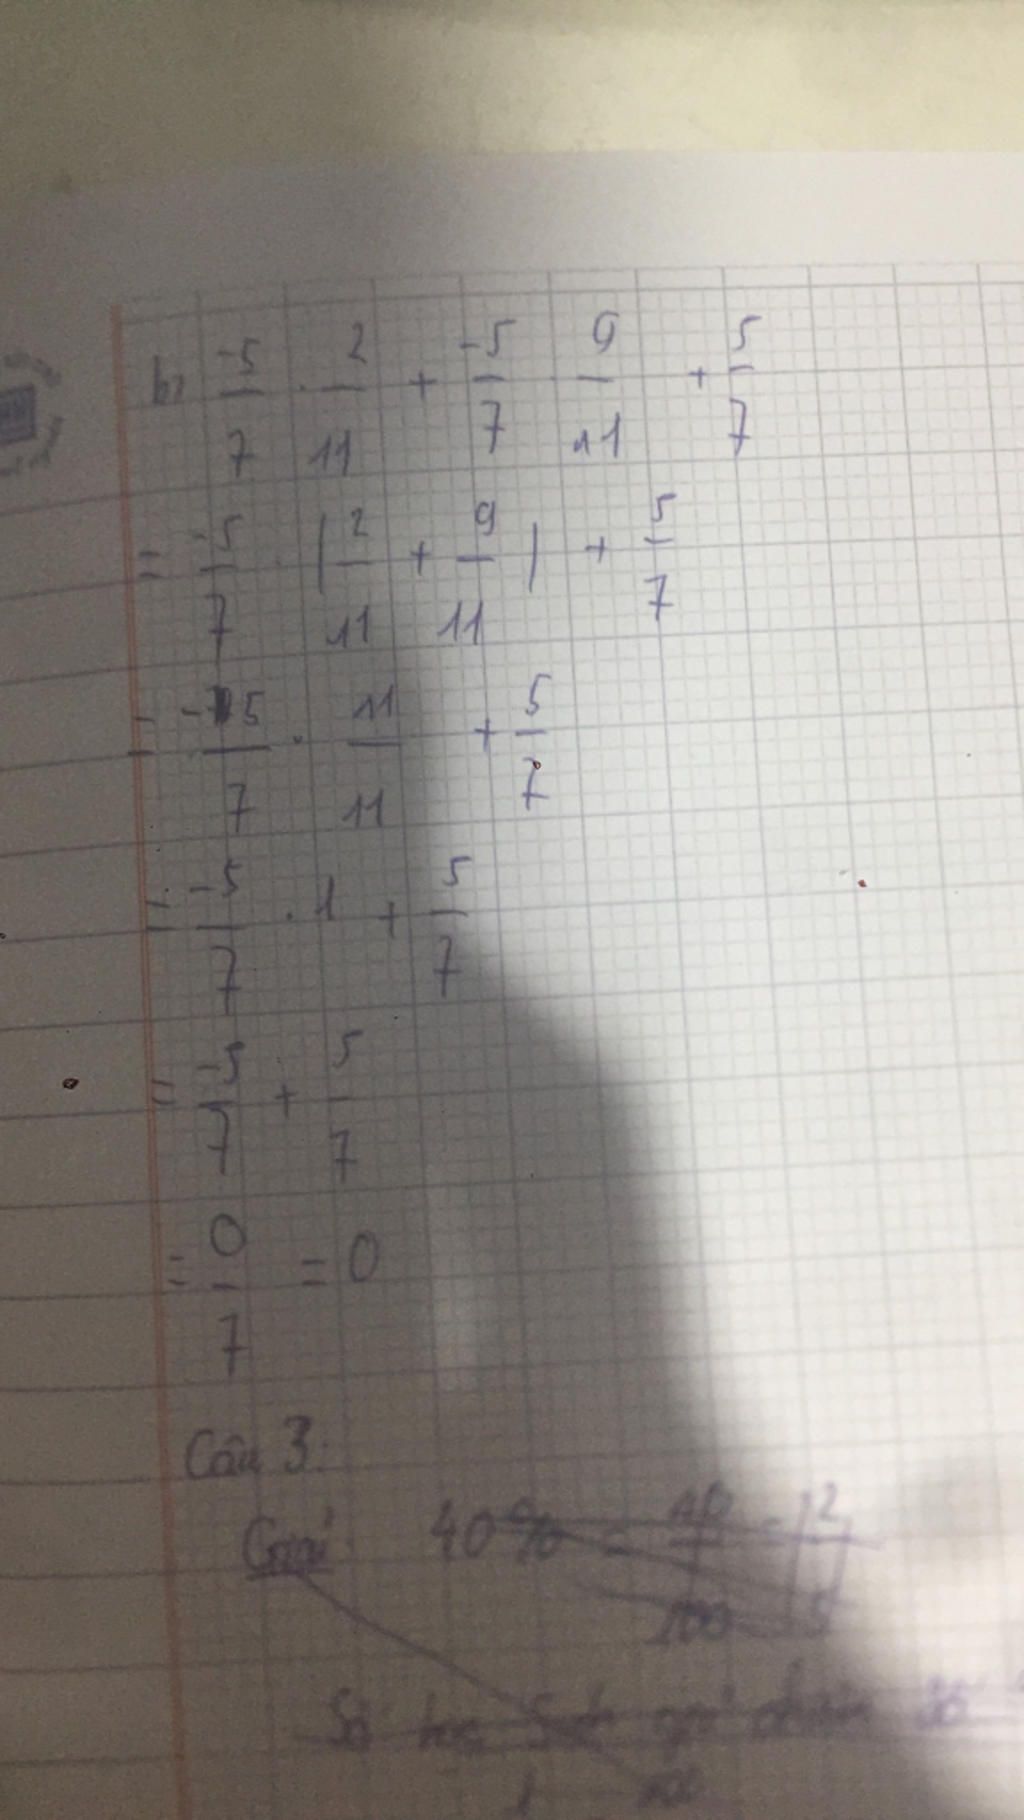 b, -5/7 . 2/11 + -5/7 . 9/11 + 5/7
= -5/7 . (2/11 + 9/11) + 5/7
= -5/7 . 11/11 + 5/7
= -5/7 . 1 + 5/7
= -5/7 + 5/7
= 0/7 = 0
Câu 3:
Giải 40% = 40/100 = 2/5
Số học Sinh giỏi chiếm số